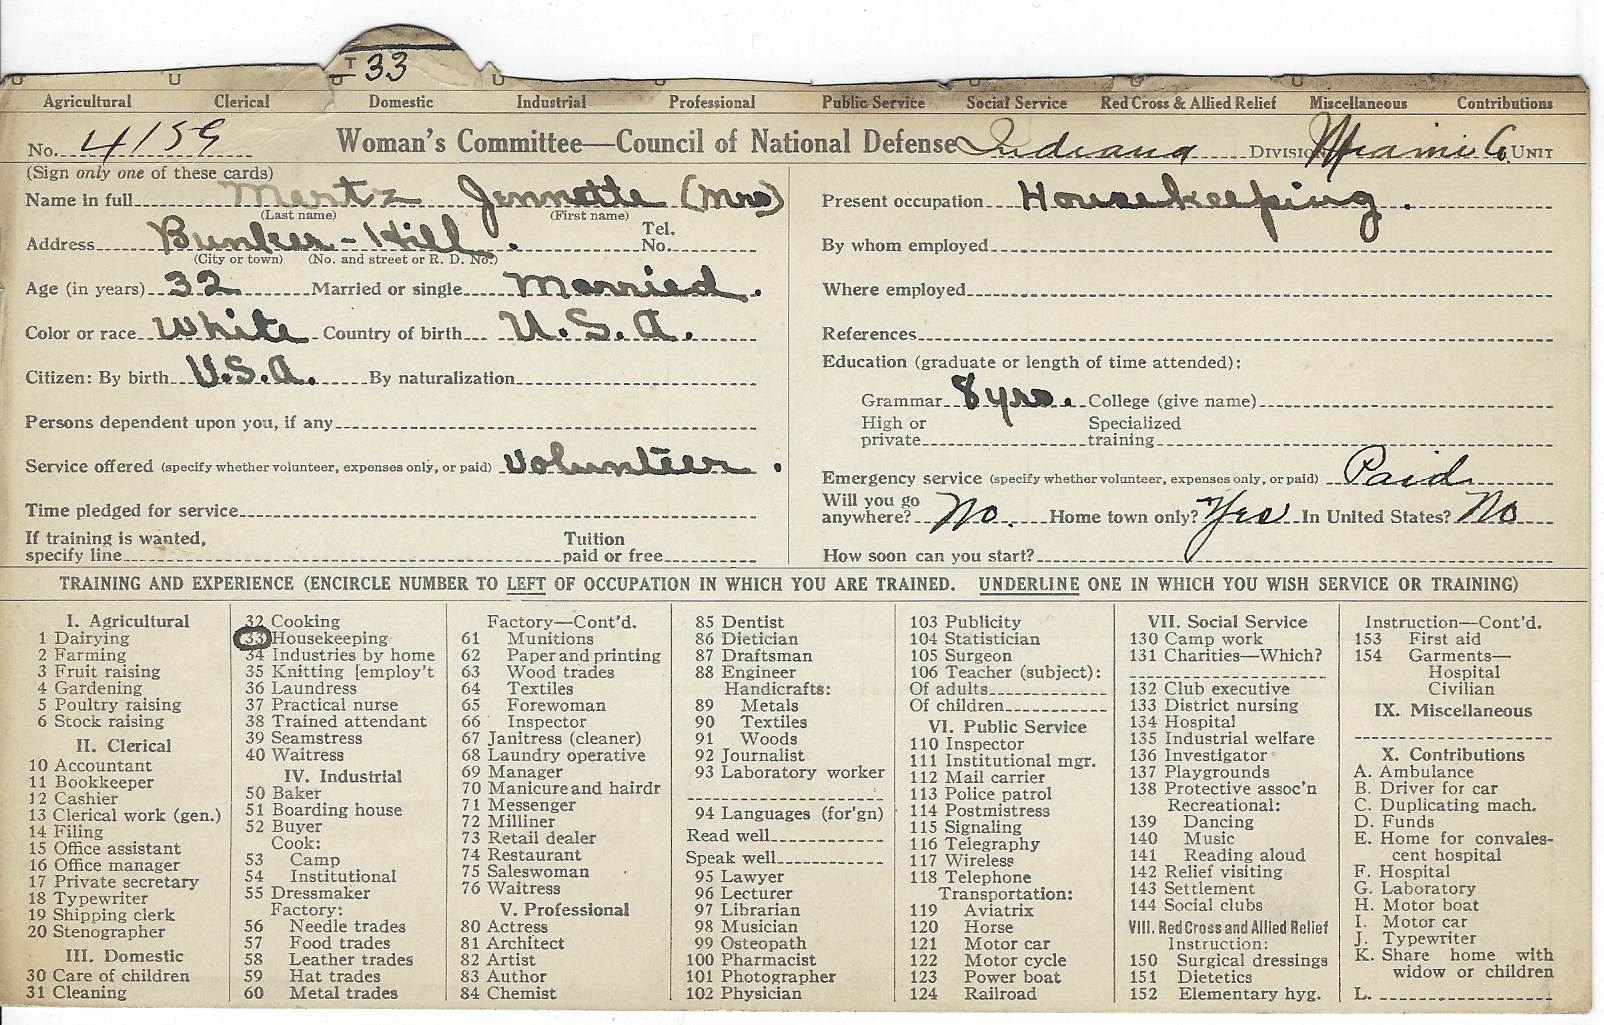 T 33
Agricultural Clerical Domestic Industrial Professional Public Service Social Service Red Cross & Allied Relief Miscellaneous Contributions
No. 4159 Woman's Committee—Council of National Defense Indiana DIVISION Miami Co. UNIT
(Sign only one of these cards)
Name in full Martz Jennette (Mrs)
(Last name) (First name)
Address Bunker-Hill. Tel. No.
(City or town) (No. and street or R. D. No.)
Age (in years) 32 Married or single Married.
Color or race White Country of birth U.S.A.
Citizen: By birth U.S.A. By naturalization
Persons dependent upon you, if any
Service offered (specify whether volunteer, expenses only, or paid) Volunteer.
Time pledged for service
If training is wanted, specify line Tuition paid or free
Present occupation Housekeeping.
By whom employed
Where employed
References
Education (graduate or length of time attended):
Grammar 8 yrs. College (give name)
High or private Specialized training
Emergency service (specify whether volunteer, expenses only, or paid) Paid
Will you go anywhere? No. Home town only? Yes In United States? No
How soon can you start?
TRAINING AND EXPERIENCE (ENCIRCLE NUMBER TO LEFT OF OCCUPATION IN WHICH YOU ARE TRAINED. UNDERLINE ONE IN WHICH YOU WISH SERVICE OR TRAINING)
I. Agricultural
1 Dairying
2 Farming
3 Fruit raising
4 Gardening
5 Poultry raising
6 Stock raising
II. Clerical
10 Accountant
11 Bookkeeper
12 Cashier
13 Clerical work (gen.)
14 Filing
15 Office assistant
16 Office manager
17 Private secretary
18 Typewriter
19 Shipping clerk
20 Stenographer
III. Domestic
30 Care of children
31 Cleaning
32 Cooking
33 Housekeeping
34 Industries by home
35 Knitting [employ't
36 Laundress
37 Practical nurse
38 Trained attendant
39 Seamstress
40 Waitress
IV. Industrial
50 Baker
51 Boarding house
52 Buyer
Cook:
53 Camp
54 Institutional
55 Dressmaker
Factory:
56 Needle trades
57 Food trades
58 Leather trades
59 Hat trades
60 Metal trades
Factory—Cont'd.
61 Munitions
62 Paper and printing
63 Wood trades
64 Textiles
65 Forewoman
66 Inspector
67 Janitress (cleaner)
68 Laundry operative
69 Manager
70 Manicure and hairdr
71 Messenger
72 Milliner
73 Retail dealer
74 Restaurant
75 Saleswoman
76 Waitress
V. Professional
80 Actress
81 Architect
82 Artist
83 Author
84 Chemist
85 Dentist
86 Dietician
87 Draftsman
88 Engineer
Handicrafts:
89 Metals
90 Textiles
91 Woods
92 Journalist
93 Laboratory worker
94 Languages (for'gn)
Read well
Speak well
95 Lawyer
96 Lecturer
97 Librarian
98 Musician
99 Osteopath
100 Pharmacist
101 Photographer
102 Physician
103 Publicity
104 Statistician
105 Surgeon
106 Teacher (subject):
Of adults
Of children
VI. Public Service
110 Inspector
111 Institutional mgr.
112 Mail carrier
113 Police patrol
114 Postmistress
115 Signaling
116 Telegraphy
117 Wireless
118 Telephone
Transportation:
119 Aviatrix
120 Horse
121 Motor car
122 Motor cycle
123 Power boat
124 Railroad
VII. Social Service
130 Camp work
131 Charities—Which?
132 Club executive
133 District nursing
134 Hospital
135 Industrial welfare
136 Investigator
137 Playgrounds
138 Protective assoc'n
Recreational:
139 Dancing
140 Music
141 Reading aloud
142 Relief visiting
143 Settlement
144 Social clubs
VIII. Red Cross and Allied Relief
Instruction:
150 Surgical dressings
151 Dietetics
152 Elementary hyg.
Instruction—Cont'd.
153 First aid
154 Garments—
Hospital
Civilian
IX. Miscellaneous
X. Contributions
A. Ambulance
B. Driver for car
C. Duplicating mach.
D. Funds
E. Home for convales-
cent hospital
F. Hospital
G. Laboratory
H. Motor boat
I. Motor car
J. Typewriter
K. Share home with
widow or children
L.